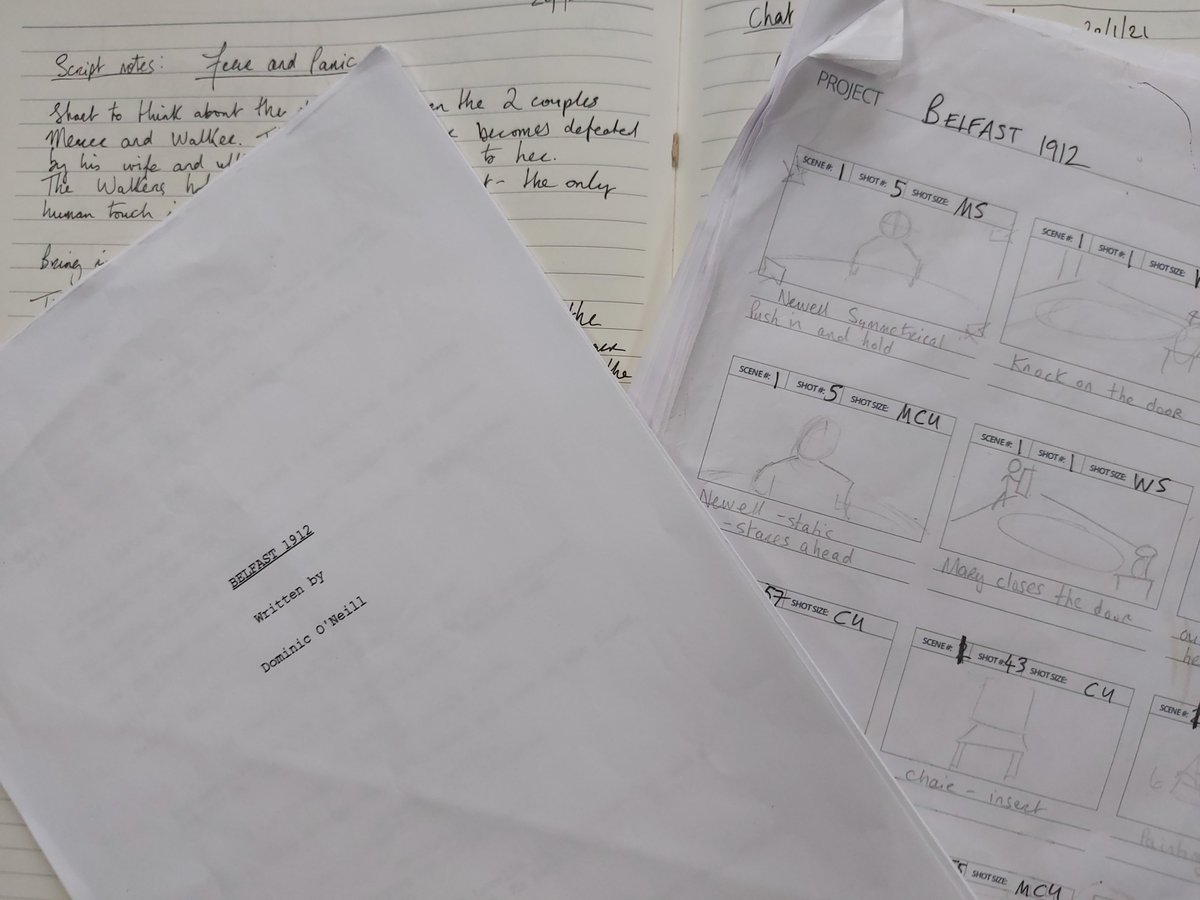 Script notes: Fear and Panic
Start to think about the
en the 2 couples
Mercer and Walker.
becomes defeated
by his wife and
to her.
The Walkers
the only
human touch
Being
the
the
Chat
20/1/21
BELFAST 1912
Written by
Dominic O'Neill
PROJECT BELFAST 1912
SCENE #: 1 SHOT #: 5 SHOT SIZE: MS
Newell Symmetrical
Push in and hold
SCENE #: 1 SHOT #: 1 SHOT SIZE:
Knock on the door
SCENE #: 1 SHOT #: 5 SHOT SIZE: MCU
Newell - static
- stares ahead
SCENE #: 1 SHOT #: 1 SHOT SIZE: WS
Mary closes the door
57 SHOT SIZE: CU
SCENE #: SHOT #: 43 SHOT SIZE: CU
Chair - insert
SCENE #:
SHOT SIZE: MCU